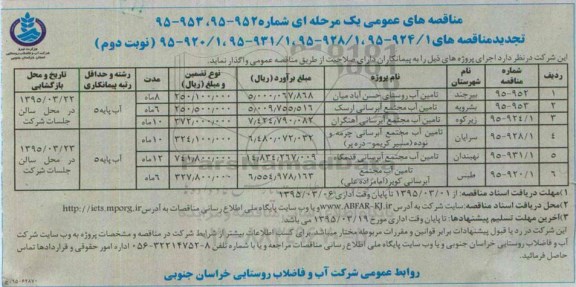 مناقصه های عمومی یک مرحله ای شماره ۹۵۲-۹۵، ۹۵۳-۹۵
تجدیدمناقصه های ۹۲۴/۱-۹۵، ۹۲۸/۱-۹۵، ۹۳۱/۱-۹۵، ۹۲۰/۱-۹۵ (نوبت دوم)
این شرکت در نظر دارد اجرای پروژه های ذیل را به پیمانکاران دارای صلاحیت از طریق مناقصه عمومی واگذار نماید.
ردیف شماره مناقصه نام شهرستان نام پروژه مبلغ برآورد (ریال) نوع تضمین و مبلغ (ریال) مدت رشته و حداقل رتبه پیمانکاری تاریخ و محل بازگشایی
۱ ۹۵۲-۹۵ بیرجند تامین آب روستای حسن آباد میان ۵/۰۰۰/۰۶۷/۸۶۸ ۲۵۰/۵۰۰/۰۰۰ ۸ماه آب پایه۵ ۱۳۹۵/۰۳/۲۲ در محل سالن جلسات شرکت
۲ ۹۵۳-۹۵ بشرویه تامین آب مجتمع آبرسانی ارسک ۵/۰۰۹/۷۵۵/۵۱۶ ۲۵۰/۵۰۰/۰۰۰ ۶ماه
۳ ۹۲۴/۱-۹۵ زیرکوه تامین آب مجتمع آبرسانی آهنگران ۷/۴۳۴/۷۹۰/۰۸۲ ۳۷۲/۰۰۰/۰۰۰ ۱۰ماه
۴ ۹۲۸/۱-۹۵ سرایان تامین آب مجتمع آبرسانی چرمه و نوده ۶/۴۸۰/۰۷۲/۰۳۲ ۳۲۴/۱۰۰/۰۰۰ ۱۰ماه آب پایه۵ ۱۳۹۵/۰۳/۲۳ در محل سالن جلسات شرکت
۵ ۹۳۱/۱-۹۵ نهبندان تامین آب مجتمع آبرسانی قدمگاه ۱۴/۸۳۴/۲۶۷/۰۰۹ ۷۴۱/۸۰۰/۰۰۰ ۱۲ماه
۶ ۹۲۰/۱-۹۵ طبس تامین آب مجتمع آبرسانی کویر (امامزاده علی) ۶/۵۵۴/۹۷۸/۱۶۳ ۳۲۷/۸۰۰/۰۰۰ ۶ماه
۱)مهلت دریافت اسناد مناقصه: از ۱۳۹۵/۰۳/۰۱ تا پایان وقت اداری ۱۳۹۵/۰۳/۰۶
۲)محل دریافت اسناد مناقصه: سایت شرکت به آدرس www.ABFAR-KJ.IR و یا وب سایت پایگاه ملی اطلاع رسانی مناقصات به آدرس http://iets.mporg.ir
۳)آخرین مهلت تسلیم پیشنهادها: تا پایان وقت اداری مورخ ۱۳۹۵/۰۳/۱۹ می باشد.
این شرکت در رد یا قبول پیشنهادات برابر قوانین و مقررات مربوطه مختار میباشد. برای کسب اطلاعات بیشتر از شرایط شرکت در مناقصه و مشخصات پروژه به وب سایت شرکت
آب و فاضلاب روستایی خراسان جنوبی و یا وب سایت پایگاه ملی اطلاع رسانی مناقصات مراجعه و یا با شماره تلفن ۸-۳۲۲۱۴۷۵۲-۰۵۶ اداره امور حقوقی و قراردادها تماس
حاصل فرمائید.
روابط عمومی شرکت آب و فاضلاب روستایی خراسان جنوبی